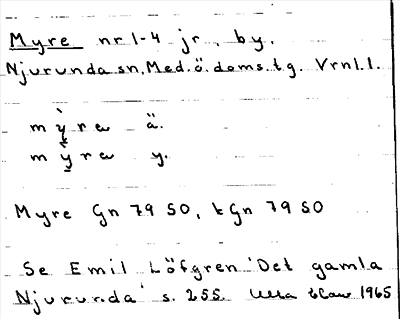 Myre nr 1-4 jr, by.
Njurunda sn. Med. ö. doms. tg. Vrnl. l.
mỳra ä.
mỳra y.
Myre Gn 79 50, tGn 79 50
Se Emil Löfgren 'Det gamla
Njurunda' s. 255. 1965